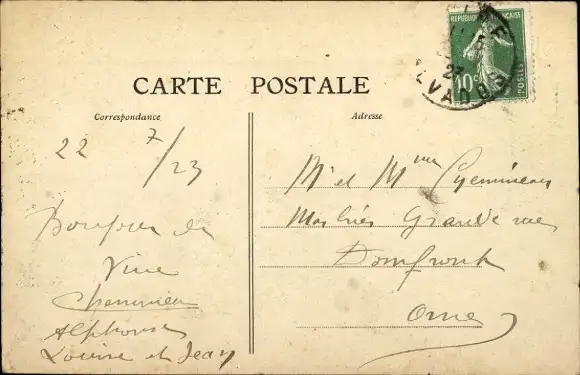 RÉPUBLIQUE FRANÇAISE
10c
POSTES
CALVADOS
CARTE POSTALE
Correspondance
Adresse
22 7/23
Bonjour de
Vire
Alphonse
Louise et Jean
Mr et Mme
Grande rue
Domfront
Orne